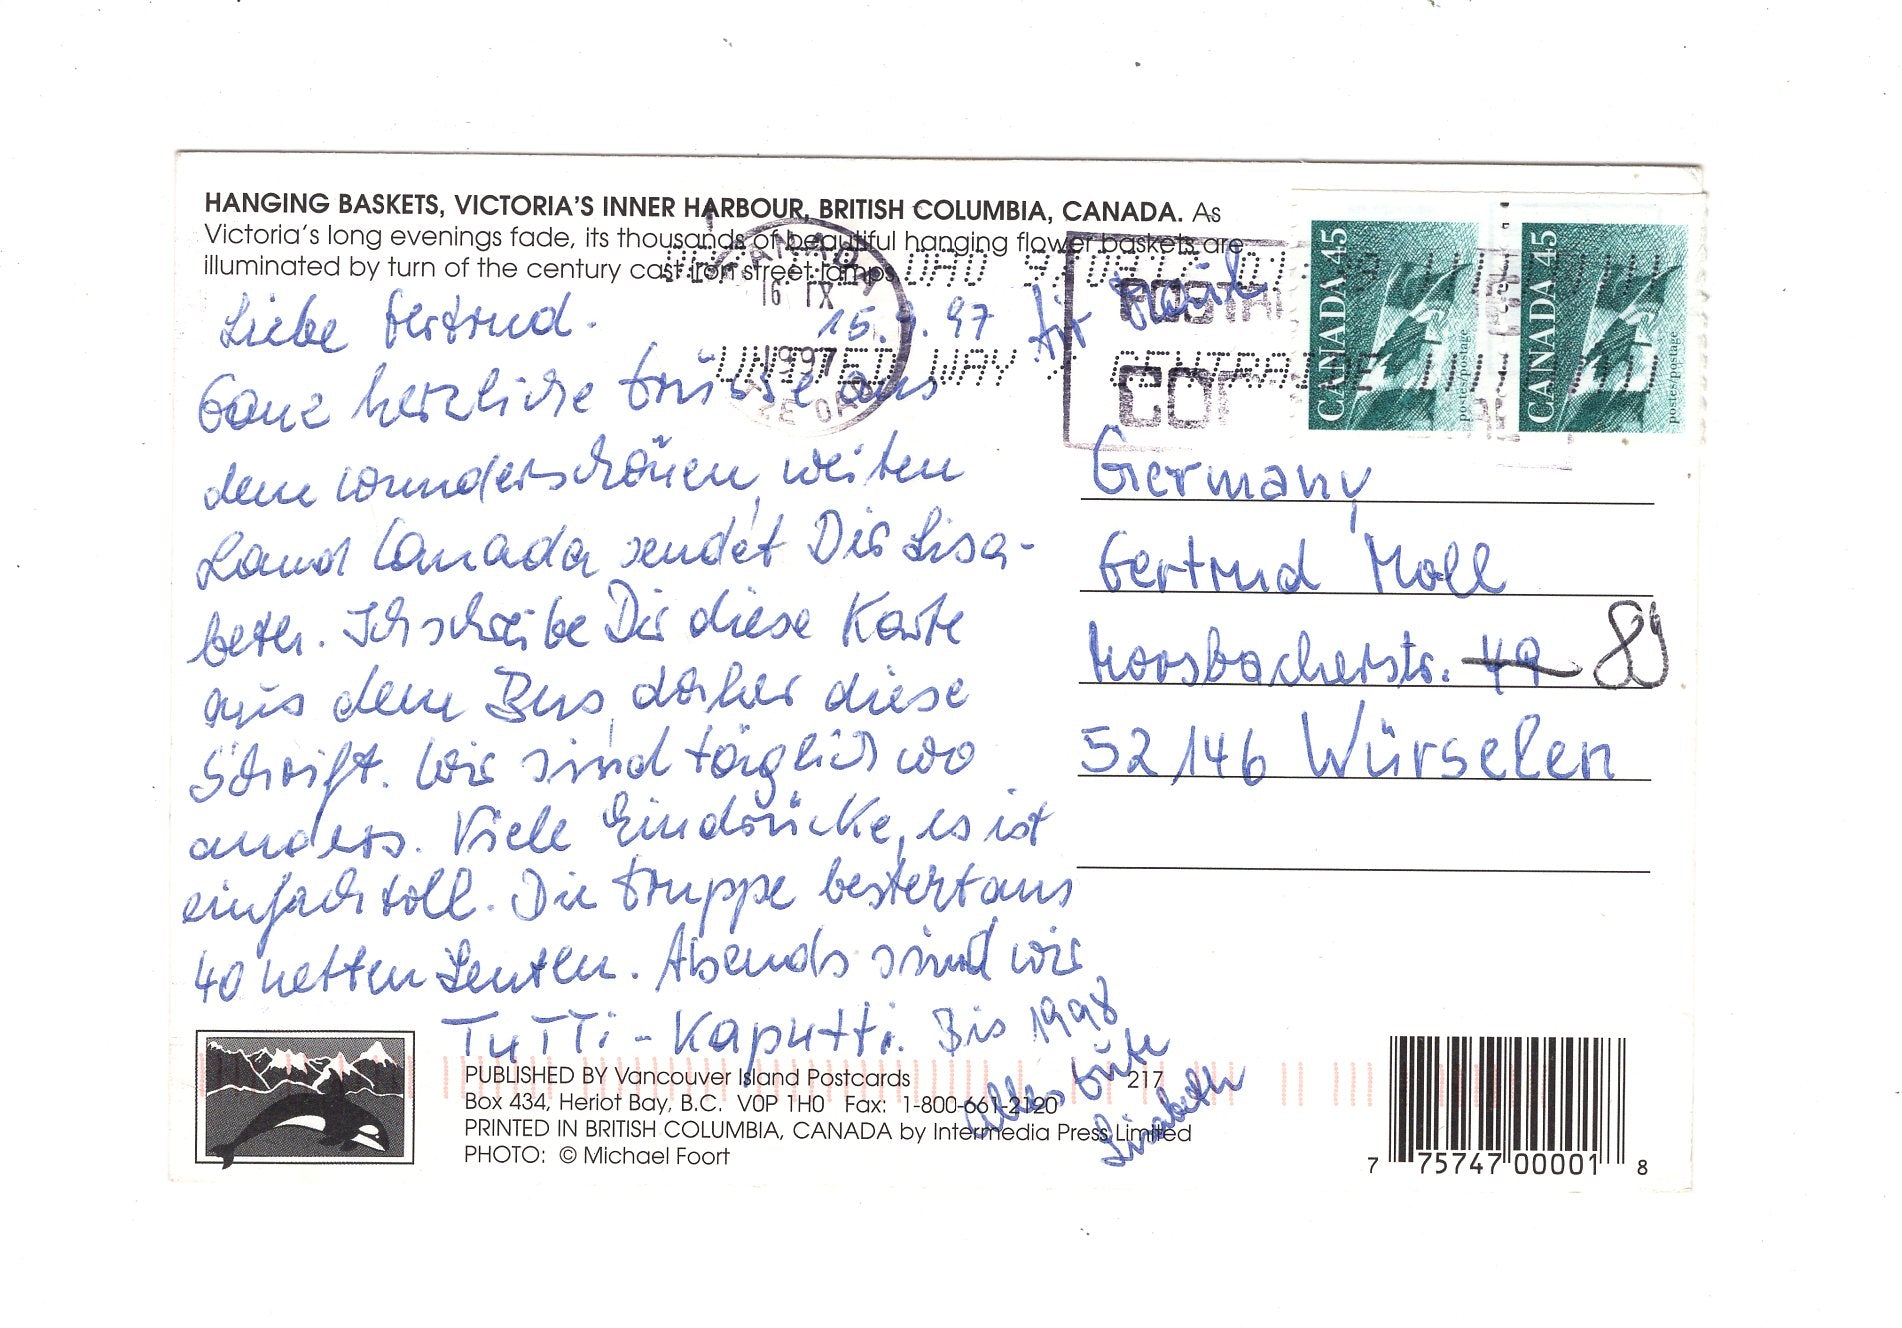 HANGING BASKETS, VICTORIA'S INNER HARBOUR, BRITISH COLUMBIA, CANADA. As
Victoria's long evenings fade, its thousands of beautiful hanging flower baskets are
illuminated by turn of the century cast iron street lamps.
CANADA
16 IX
1997
UNITED WAY
POSTAL
CO
CANADA 45
postes/postage
CANADA 45
postes/postage
Liebe Gertrud. 15.9.97 Air Mail
Ganz herzliche Grüsse aus
dem wunderschönen, weiten
Land Canada sendet Dir Lisa-
beth. Ich schreibe Dir diese Karte
aus dem Bus, daher diese
Schrift. Wir sind täglich wo
anders. Viele Eindrücke, es ist
einfach toll. Die Gruppe besteht aus
40 netten Leuten. Abends sind wir
Tutti-Kaputti. Bis 1998
Alles Gute
Lisabeth
Germany
Gertrud Moll
Morsbacherstr. 49 89
52146 Würselen
PUBLISHED BY Vancouver Island Postcards 217
Box 434, Heriot Bay, B.C. V0P 1H0 Fax: 1-800-661-2120
PRINTED IN BRITISH COLUMBIA, CANADA by Intermedia Press Limited
PHOTO: © Michael Foort
7 75747 00001 8